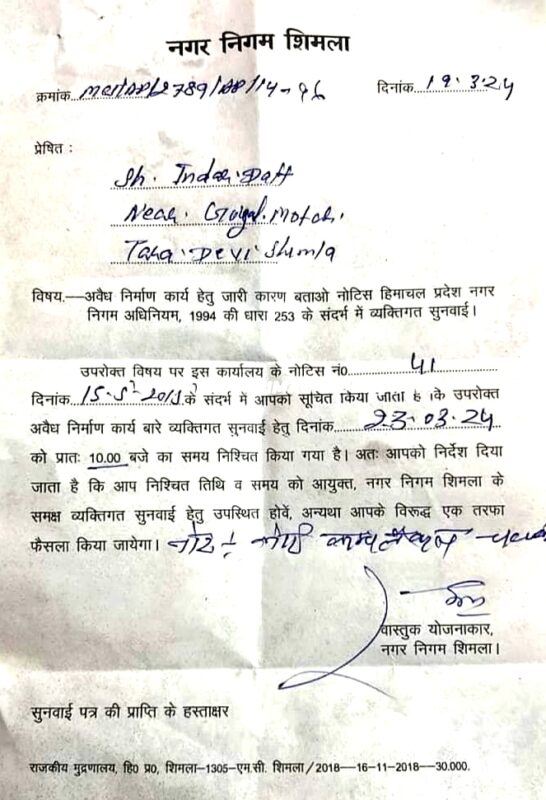 नगर निगम शिमला
क्रमांक
दिनांक 19.3.24
प्रेषित :
Sh. Inder Datt
Near. Goyal. Motor.
Tara. Devi Shimla
विषय.—अवैध निर्माण कार्य हेतु जारी कारण बताओ नोटिस हिमाचल प्रदेश नगर
निगम अधिनियम, 1994 की धारा 253 के संदर्भ में व्यक्तिगत सुनवाई।
उपरोक्त विषय पर इस कार्यालय के नोटिस नं0 41
दिनांक के संदर्भ में आपको सूचित किया जाता है कि उपरोक्त
अवैध निर्माण कार्य बारे व्यक्तिगत सुनवाई हेतु दिनांक 23.03.24
को प्रातः 10.00 बजे का समय निश्चित किया गया है। अतः आपको निर्देश दिया
जाता है कि आप निश्चित तिथि व समय को आयुक्त, नगर निगम शिमला के
समक्ष व्यक्तिगत सुनवाई हेतु उपस्थित होवें, अन्यथा आपके विरूद्ध एक तरफा
फैसला किया जायेगा। नोट :-
वास्तुक योजनाकार,
नगर निगम शिमला।
सुनवाई पत्र की प्राप्ति के हस्ताक्षर
राजकीय मुद्रणालय, हि0 प्र0, शिमला-1305-एम.सी. शिमला/2018—16-11-2018—30.000.